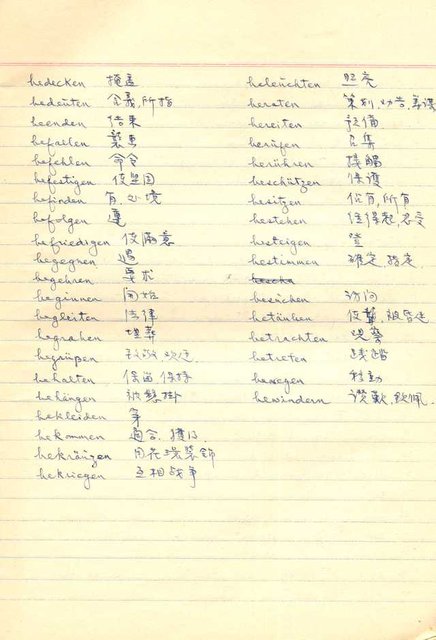 bedecken 掩盖
bedeuten 含義,所指
beenden 结束
befallen 襲惠
befehlen 命令
befestigen 使坚固
befinden 有,处境
befolgen 遵
befriedigen 使滿意
begegnen 遇
begehren 要求
beginnen 開始
begleiten 法律
begraben 埋葬
begrüpen 欢迎
behalten 保留,保持
behängen 被懸掛
bekleiden 
bekommen 適合,獲得
bekränzen 用花環装飾
bekriegen 互相战争
beleuchten 照亮
beraten 策划,劝告
bereiten 
berufen 召集
berühren 接觸
beschützen 保護
besitzen 佔有,所有
bestehen 
besteigen 登
bestimmen 確定,指定
besuchen 访问
betäuben 使聾
betrachten 
betreten 
bewegen 移動
bewundern 讚歎,欽佩